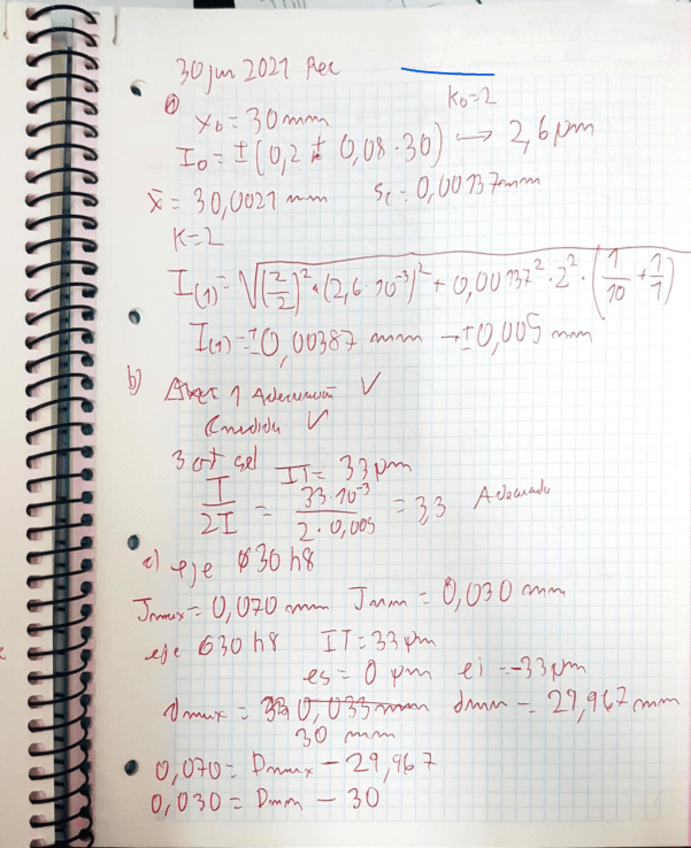 30 jun 2021 Rec
a)
x₀ = 30 mm k₀=2
I₀ = ± (0,2 ± 0,08 · 30) → 2,6 µm
x̄ = 30,0021 mm s꜀ = 0,00137mm
K=2
I(1) = √(2/2)² · (2,6 · 10⁻³)² + 0,00137² · 2² · (1/10 + 1/1)
I(1) = ± 0,00387 mm → ± 0,005 mm
b) 1 Adecuación ✓
medida ✓
3 IT = 33 µm
I/2I = 33·10⁻³/2·0,005 = 3,3 Adecuado
c) eje ϕ30 h8
Jmax = 0,070 mm Jmin = 0,030 mm
eje ϕ30 h8 IT = 33 µm
es = 0 µm ei = -33 µm
dmax = 0,033 mm dmin = 29,967 mm
30 mm
0,070 = Dmax - 29,967
0,030 = Dmin - 30